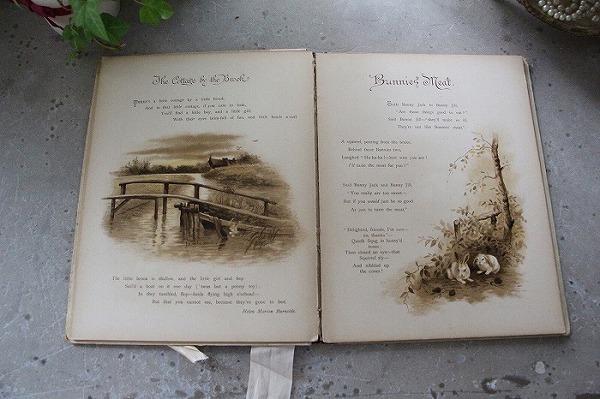 The Cottage by the Brook.
There's a little cottage by a little brook,
And in that little cottage, if you care to look,
You'll find a little boy, and a little girl,
With their eyes brim-full of fun, and their heads a-curl
The little brook is shallow, and the little girl and boy
Sail'd a boat on it one day ('twas but a penny toy);
In they tumbled, flop—heels flying high o'erhead!—
But that you cannot see, because they're gone to bed.
Helen Marion Burnside.
Bunnies' Meat.
Said Bunny Jack to Bunny Jill,
"Are these things good to eat?"
Said Bunny Jill—"they'll make us ill,
They're not like Bunnies' meat."
A squirrel, peering from the boughs,
Behind these Bunnies two,
Laughed "Ha-ha-ha!—but wise you are!
I'll taste the meat for you!"
Said Bunny Jack and Bunny Jill,
"You really are too sweet—
But if you would just be so good
As just to taste the meat."
"Delighted, friends, I'm sure—
no thanks"—
Quoth Squg, in honey'd
tones;
Then closed an eye—that
Squirrel sly—
And nibbled up
the cones!